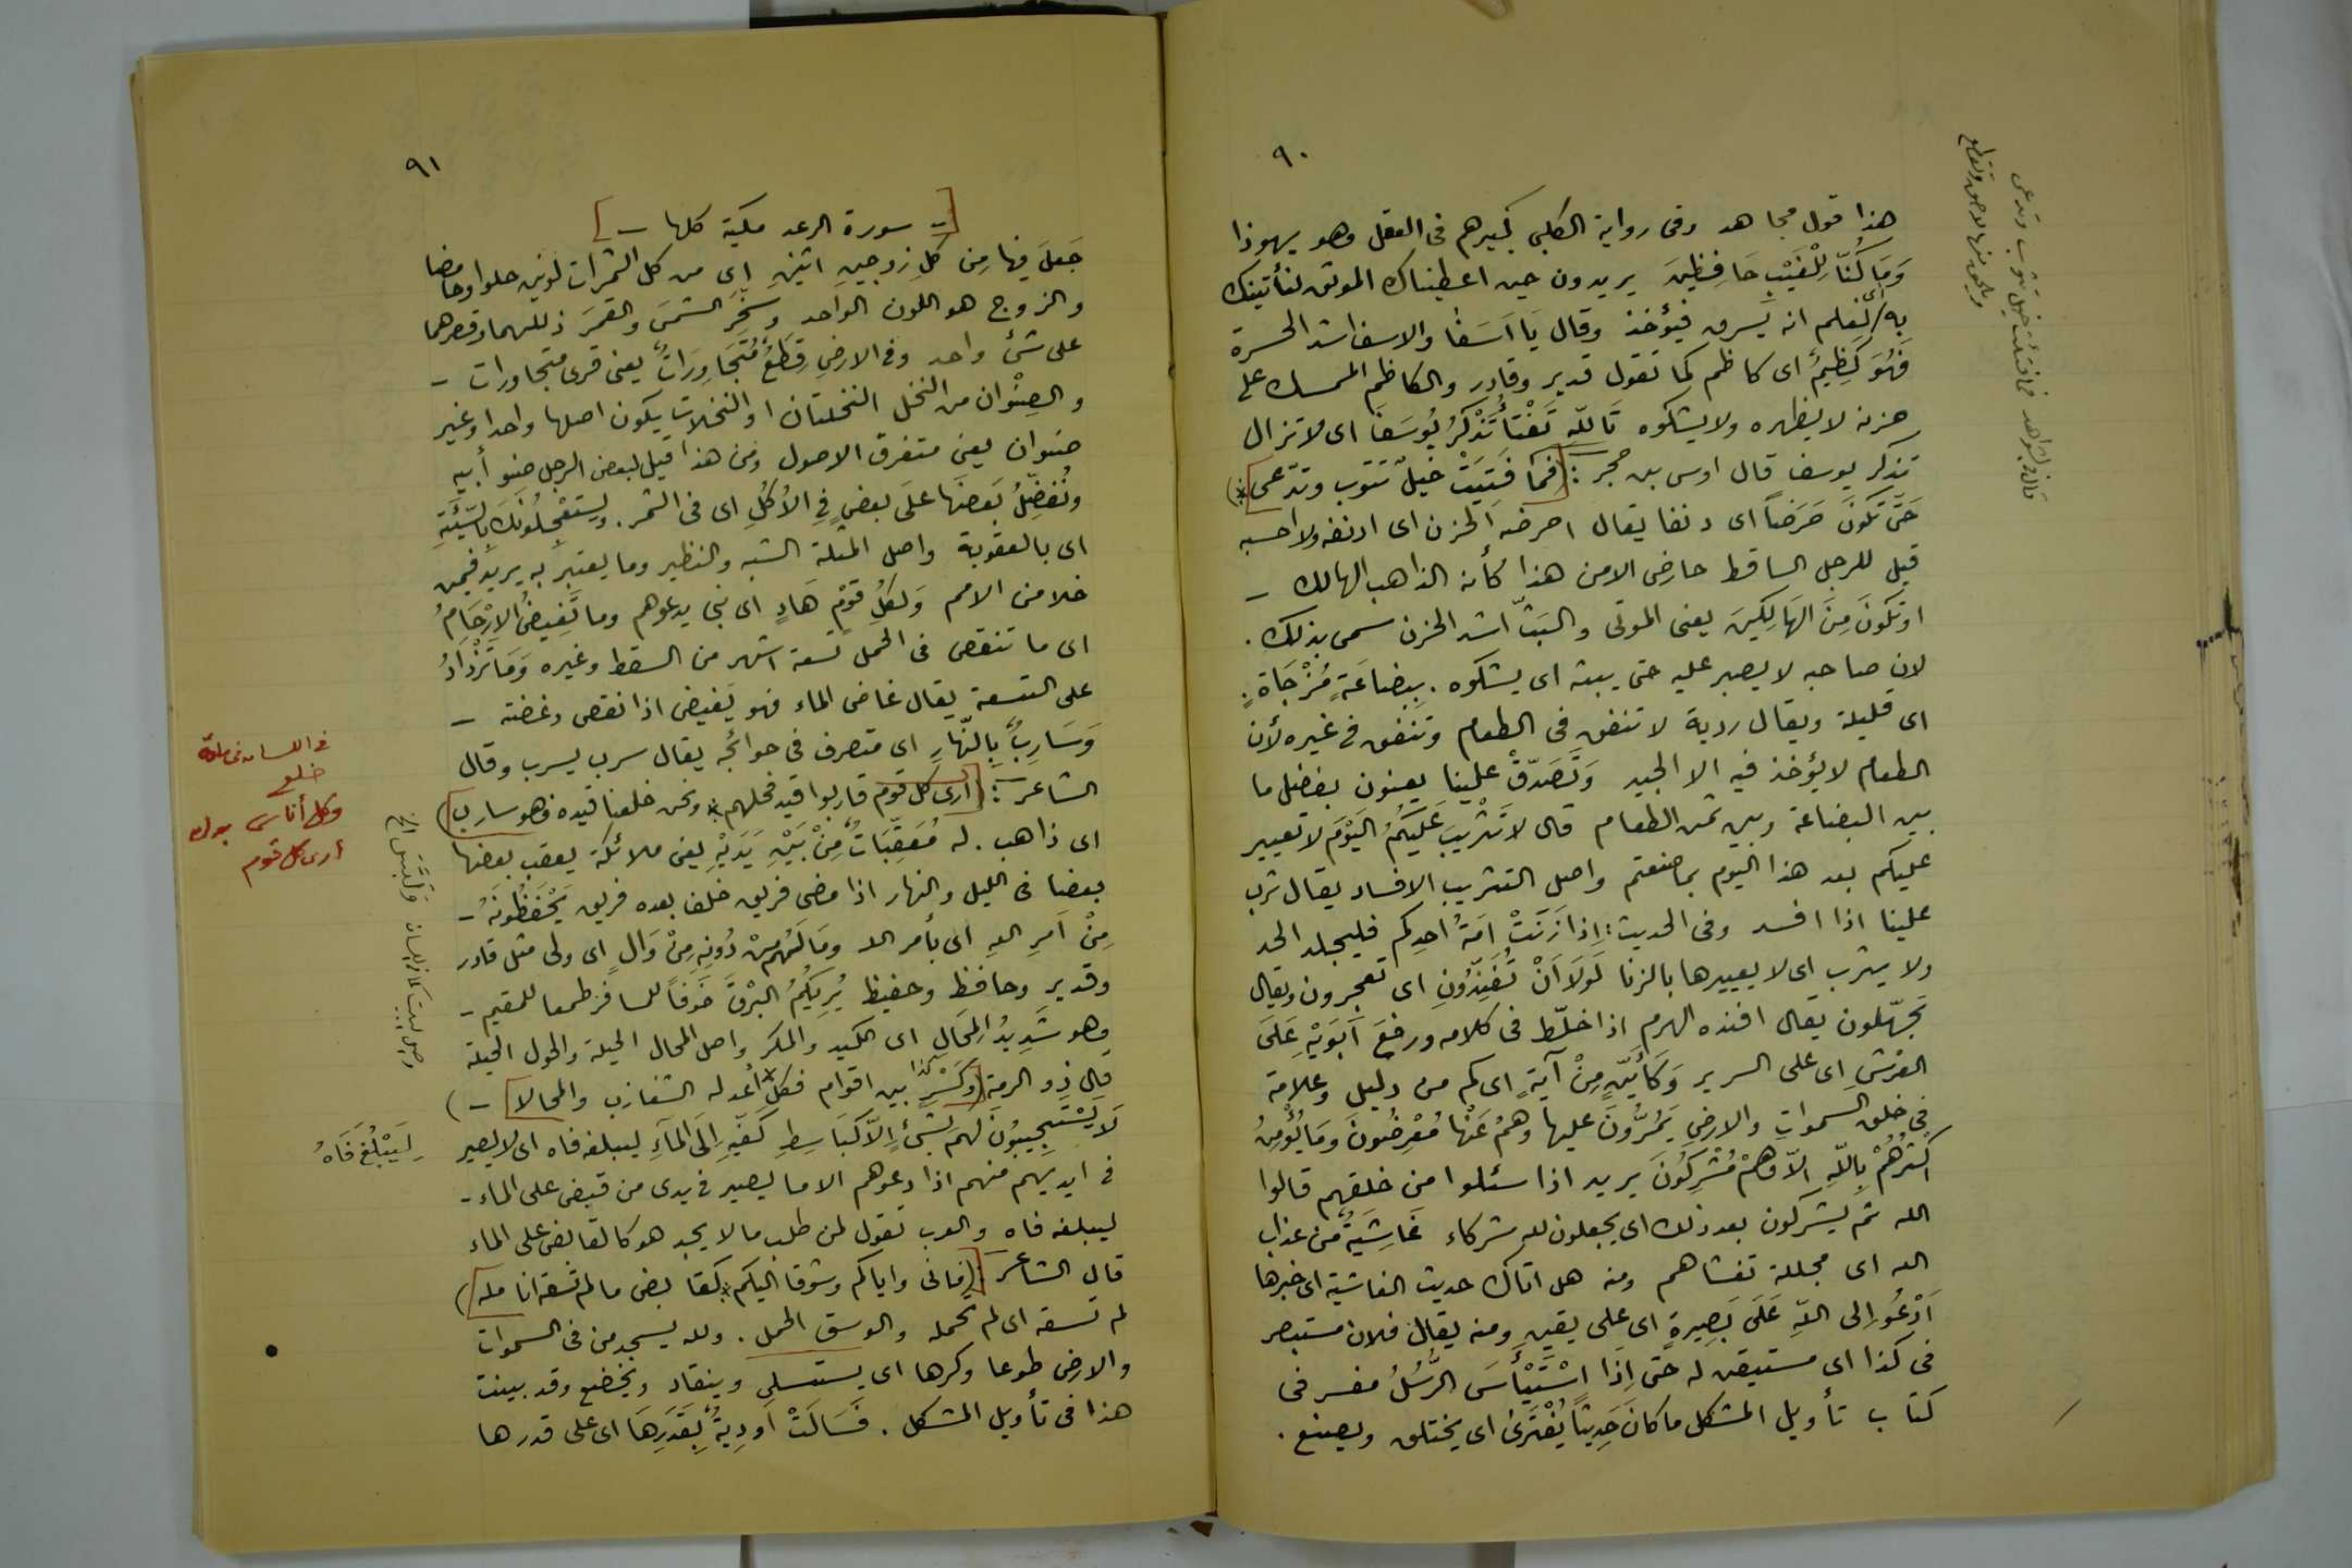 ٩٠
هذا قول مجاهد وفى رواية الكلبي كبيرهم فى العقل وهو يهوذا
وَمَا كُنَّا لِلْغَيْبِ حَافِظِينَ يريدون حين اعطيناك الموثق لنأتينك
به اى لم نعلم انه يسرق فيؤخذ وقال يَا اَسَفَا والاسف اشد الحسرة
فَهُوَ كَظِيمٌ اى كاظم كما تقول قدير وقادر والكاظم الممسك على
حزنه لا يظهره ولا يشكوه تَاللّهِ تَفْتَأُ تَذْكُرُ يُوسُفَ اى لا تزال
تذكر يوسف قال اوس بن حجر : (فما فَتِيَتْ خيلٌ تثوب وتدّعى *)
حَتَّى تَكُونَ حَرَضاً اى دنفا يقال احرضه الحزن اى ادنفه ولا احسبه
قيل للرجل الساقط حارض الا من هذا كأنه الذاهب الهالك –
اوتَكُونَ مِنَ الهَالِكِينَ يعنى الموتى والبَثّ اشد الحزن سمى بذلك .
لان صاحبه لا يصبر عليه حتى يبثه اى يشكوه . بِبِضَاعَةٍ مُزْجَاةٍ .
اى قليلة ويقال ردية لا تنفق فى الطعام وتنفق فى غيره لأن
الطعام لا يؤخذ فيه الا الجيد وَتَصَدّقْ علينا يعنون بفضل ما
بين البضاعة وبين ثمن الطعام قال لاَ تَثْرِيبَ عَلَيكُمُ اليَوْمَ لا تعيير
عليكم بعد هذا اليوم بما صنعتم واصل التثريب الافساد يقال ثرب
علينا اذا افسد وفى الحديث : اِذا زَنَتْ اَمَةُ احدِكم فليجلد الحد
ولا يثرب اى لا يعيرها بالزنا لَولَا اَنْ تُفَنِّدُونِ اى تعجزون ويقال
تجهّلون يقال افنده الهرم اذا خلّط فى كلامه ورفعَ اَبَوَيْهِ عَلَى
العَرْشِ اى على السرير وَكَأَيّنٍ مِنْ آيَةٍ اى كم من دليل وعلامة
فى خلق السموات والارض يَمُرُّونَ عليها وَهُمْ عَنْهَا مُعْرِضُونَ وَمَا يُؤْمِنُ
اَكثَرُهُمْ بِاللّهِ الاّ وَهُمْ مُشْرِكُونَ يريد اذا سئلوا من خلقهم قالوا
الله ثم يشركون بعد ذلك اى يجعلون لله شركاء غَاشِيَةٌ من عذاب
الله اى مجللة تغشاهم ومنه هل اتاك حديث الغاشية اى خبرها
اَدْعُو اِلى اللّهِ عَلَى بَصِيرةٍ اى على يقين ومنه يقال فلان مستبصر
فى كذا اى مستيقن له حتى اِذَا اسْتَيْأَسَ الرُّسُلُ مفسر فى
كتاب تأويل المشكل ما كانَ حَدِيثاً يُفْتَرَىٰ اى يختلق ويصنع .
قال فى الشواهد فما فتئت خيل تثوب وتدعى
ويلحق منها لاحق وتقطع
٩١
[– سورة الرعد مكية كلها –]
جَعَلَ فِيها مِن كلِّ زوجينِ اثنينِ اى من كل الثمرات لونين حلوا وحامضا
والزوج هو اللون الواحد وسَخَّرَ الشمسَ والقمرَ ذللهما وقصرهما
على شئ واحد وفى الارضِ قِطَعٌ مُتَجَاوِرَاتٌ يعنى قرى متجاورات –
والصِنْوان من النخل النخلتان او النخلات يكون اصلها واحدا وغير
صنوان يعنى متفرق الاصول ومن هذا قيل لبعض الرجل صنو أبيه
ونُفَضِّلُ بَعضَهَا عَلَى بعضٍ فِى الاُكُلِ اى فى الثمر . ويَستَعْجِلُونَكَ بِالسَّيِّئَةِ
اى بالعقوبة واصل المثلة الشبه والنظير وما يعتبر به يريد فيمن
خلا من الامم وَلِكُلِّ قَوْمٍ هَادٍ اى نبى يدعوهم وما تَغِيضُ الاَرْحَامُ
اى ما تنقص فى الحمل تسعة اشهر من السقط وغيره وَمَا تَزْدَادُ
على التسعة يقال غاض الماء فهو يَغيض اذا نقص وغضته –
وَسَارِبٌ بِالنّهارِ اى متصرف فى حوائجه يقال سرب يسرب وقال
الشاعر : (أرى كل قوم قاربوا قيد فحلهم * ونحن خلعنا قيده فهو سارب)
اى ذاهب . له مُعَقِّبَاتٌ مِنْ بَيْنِ يَدَيْهِ يعنى ملائكة يعقب بعضها
بعضا فى الليل والنهار اذا مضى فريق خلف بعده فريق يَحْفَظُونَهُ –
مِنْ اَمرِ اللهِ اى بأمر الله ومَا لَهُم مِنْ دُونِهِ مِنْ وَالٍ اى ولى مثل قادر
وقدير وحافظ وحفيظ يُرِيكُمُ البَرْقَ خَوفاً للمسافر وطمعا للمقيم –
وهو شَدِيدُ المِحَالِ اى الكيد والمكر واصل المحال الحيلة والحول الحيلة
قال ذو الرمة (وَلَبْسٍ كذا بين اقوام فكلٌّ * أعد له الشغازب والمحالا –)
لَا يَسْتَجِيبُونَ لَهُم بِشَئٍ اِلاّ كَبَاسِطِ كَفَّيْهِ اِلَى المَآءِ ليبلغ فاه اى لا يصير
فى ايديهم منهم اذا دعوهم الا ما يصير فى يدى من قبض على الماء –
ليبلغ فاه والعرب تقول لمن طلب ما لا يجد هو كالقابض على الماء
قال الشاعر : (فانى واياكم وشوقا اليكم * كقابض ما لم تسقه انا مله)
لم تسقه اى لم تحمله والوسق الحمل . ولله يسجد من فى السموات
والارض طوعا وكرها اى يستسلم وينقاد ويخضع وقد بينت
هذا فى تأويل المشكل . فَسَالَتْ اَودِيَةٌ بِقَدَرِهَا اى على قدرها
فى اللسان فى مادة
خلع
وكل أناس بدل
أرى كل قوم
لِيَبْلُغَ فَاهُ